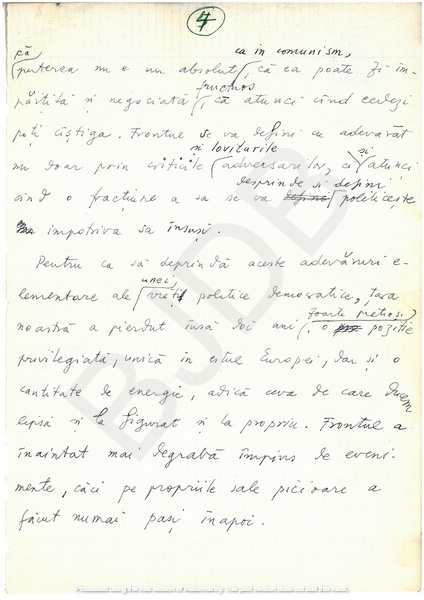 4
că
puterea nu e un absolut, ca in comunism, că ea poate fi îm-
părțită și negociată fructuos, că atunci cînd cedezi
poți cîștiga. Frontul se va defini cu adevărat
nu doar prin criticile și loviturile adversarilor, ci și atunci
cind o fracțiune a sa se va desprinde și defini politicește
impotriva sa însuși.
Pentru ca să deprindă aceste adevăruri e-
lementare ale unei vieți politice democratice, țara
noastră a pierdut însă doi ani, o foarte prețioasă poziție
privilegiată, unică in estul Europei, dar și o
cantitate de energie, adică ceva de care ducem
lipsă și la figurat și la propriu. Frontul a
înaintat mai degrabă împins de eveni-
mente, căci pe propriile sale picioare a
făcut numai pași înapoi.
BJDB